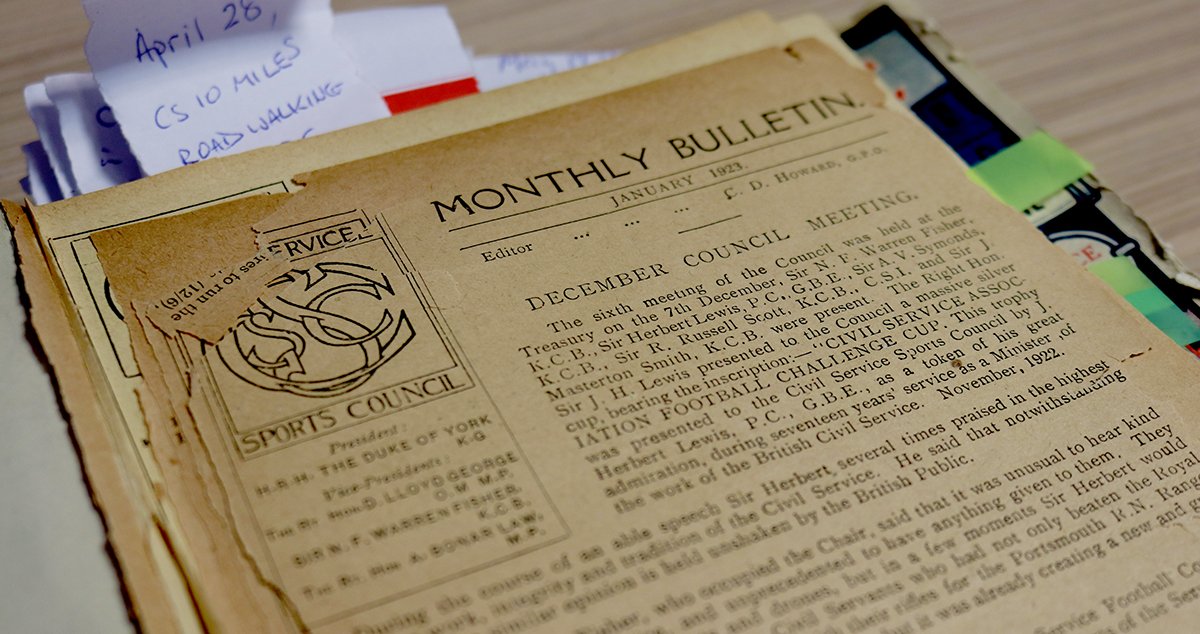 April 28,
CS 10 MILES
ROAD WALKING
MONTHLY BULLETIN.
JANUARY 1923.
Editor ... ... ... C. D. HOWARD, G.P.O.
ERVICE
ires to run
the
(12/6).
SPORTS COUNCIL
President:
H.R.H. THE DUKE OF YORK
K.G.
Vice-Presidents:
THE RT. HON D. LLOYD GEORGE
O.M. M.P.
SIR N. F. WARREN FISHER,
K.C.B.
THE RT. HON A. BONAR LAW
M.P.
DECEMBER COUNCIL MEETING.
The sixth meeting of the Council was held at the
Treasury on the 7th December, Sir N. F. Warren Fisher,
K.C.B., Sir Herbert Lewis, P.C., G.B.E., Sir A. V. Symonds,
K.C.B., Sir R. Russell Scott, K.C.B., C.S.I. and Sir J.
Masterton Smith, K.C.B., were present. The Right Hon.
Sir J. H. Lewis presented to the Council a massive silver
cup, bearing the inscription:—"CIVIL SERVICE ASSOC-
IATION FOOTBALL CHALLENGE CUP. This trophy
was presented to the Civil Service Sports Council by J.
Herbert Lewis, P.C., G.B.E., as a token of his great
admiration, during seventeen years' service as a Minister, of
the work of the British Civil Service. November, 1922.
During the course of an able speech Sir Herbert several times praised in the highest
work, integrity and tradition of the Civil Service. He said that notwithstanding
similar opinion is held unshaken by the British Public.
who occupied the Chair, said that it was unusual to hear kind
and unprecedented to have anything given to them. They
and drones, but in a few moments Sir Herbert would
Civil Servants who had not only beaten the Royal
their rifles for the Portsmouth R.N. Rang
but it was already creating a new and
Service Football C
of the Se